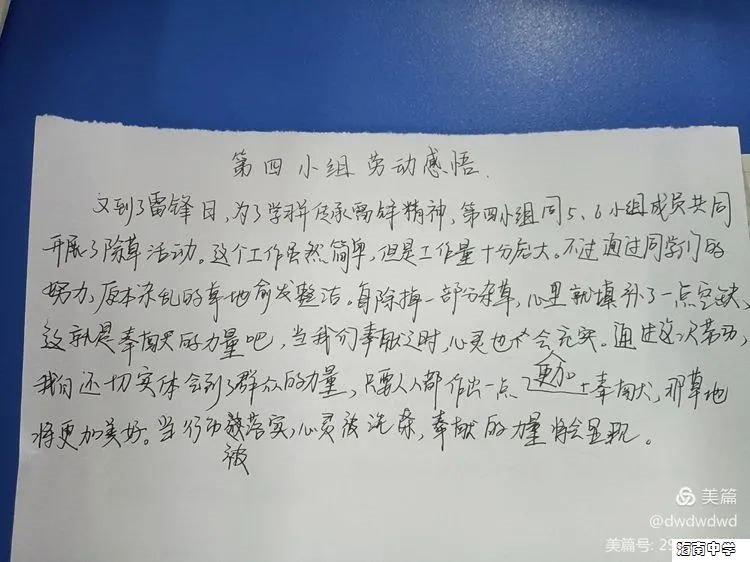 第四小组劳动感悟.
又到了雷锋日,为了学习并传承雷锋精神,第四小组同5、6小组成员共同
开展了除草活动。这个工作虽然简单,但是工作量十分庞大。不过通过同学们的
努力,原本杂乱的草地愈发整洁。每除掉一部分杂草,心里就填补了一点空缺、
这就是奉献的力量吧,当我们奉献之时,心灵也会充实。通过这次劳动,
我们还切实体会到了群众的力量,只要人人都作出一点奉献,那草地
更加
将更加美好。当行动落实,心灵被洗涤,奉献的力量将会显现。
被
美篇
@dwdwdwd
美篇号: 29
海南中学